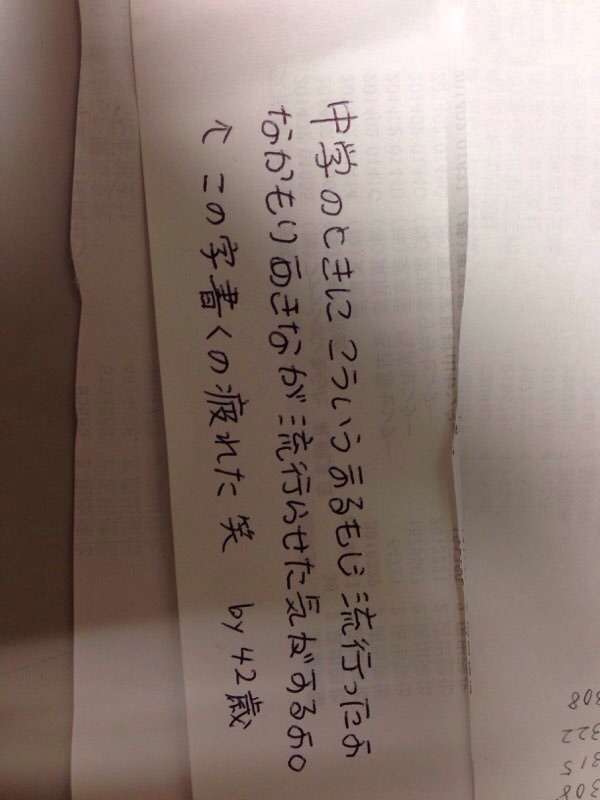 中学のときにこういうまるもじ流行ったよ
なかもりあきなが流行らせた気がするよ。
↑この字書くの疲れた笑 by 42歳
308
322
315
308